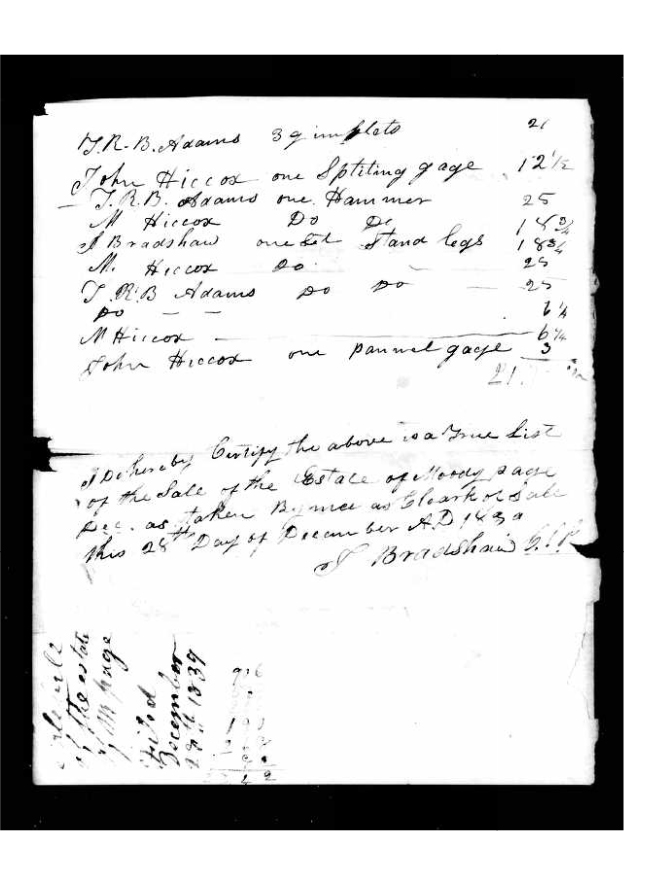 T. R. B. Adams 3 gimblets 21
John Hiccox one Sptiting gage 12 1/2
T. R. B. Adams one Hammer 25
M Hiccox Do Do 18 3/4
J Bradshaw one Set Stand legs 18 3/4
M. Hiccox Do 25
T. R. B Adams Do Do 25
Do 6 1/4
M Hiccox 6 1/4
John Hiccox one pannel gage 3
21
I Do hereby Certify the above is a True List
of the Sale of the Estate of Moody page
Dec. as taken By mee as Cleark of Sale
this 28th Day of December A.D 1839
J Bradshaw
of the estate
of M page
Filed
December
28th 1839